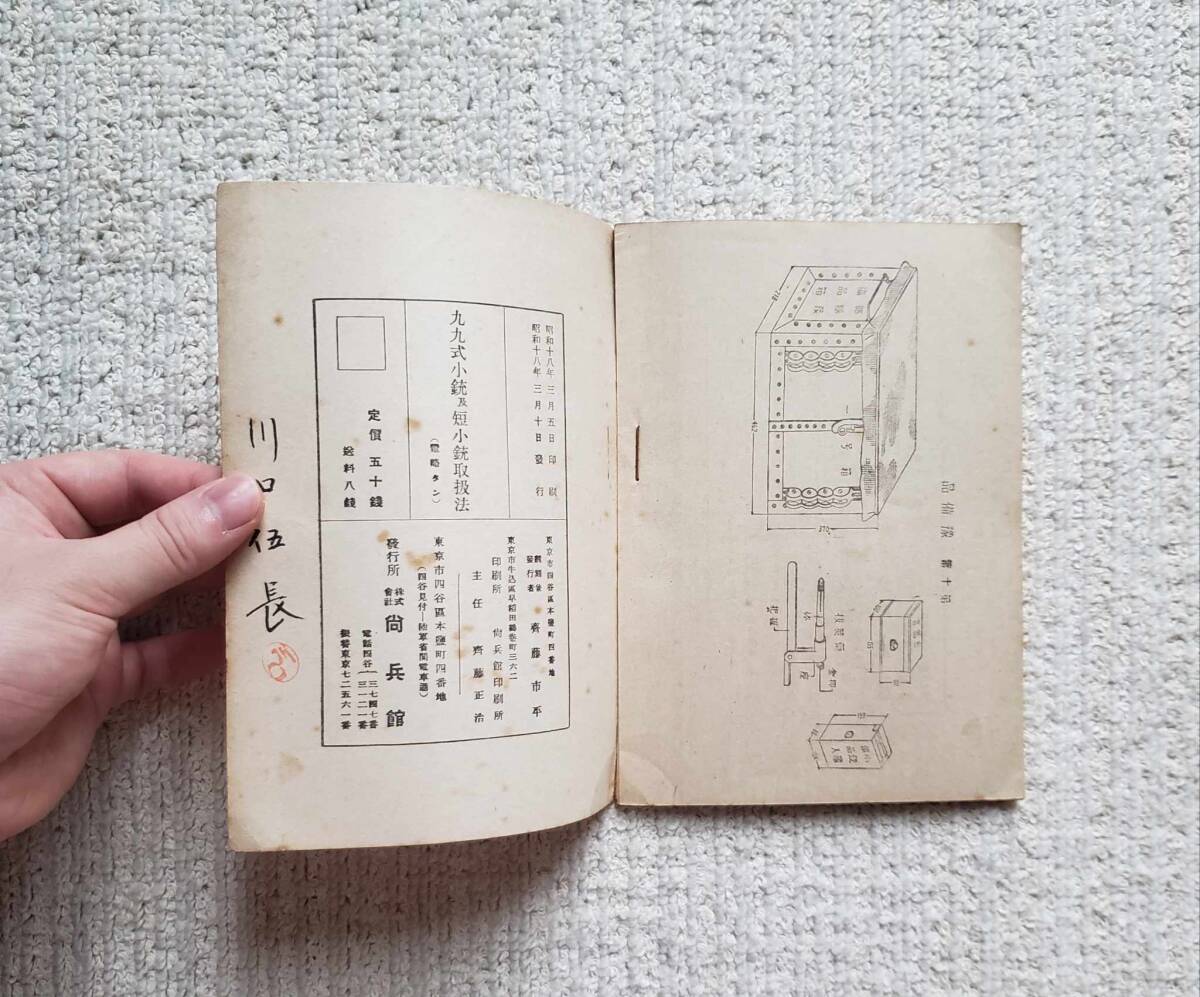 品備豫 圖十第
豫備
品器
箱段
一号箱
370
坐
昭和十八年 三月五日印刷
昭和十八年 三月十日發行
九九式小銃及短小銃取扱法
(電略タン)
定價 五十錢
送料八錢
東京市四谷區本鹽町四番地
發行者 齊藤市平
東京市牛込區早稻田鶴卷町三六二
印刷所 尚兵館印刷所
主任 齊藤正治
東京市四谷區本鹽町四番地
(四谷見付―陸軍省間電車通)
發行所 株式會社 尚兵館
電話四谷(三七四七番
三一二一番
振替東京七二五六一番
川口伍長